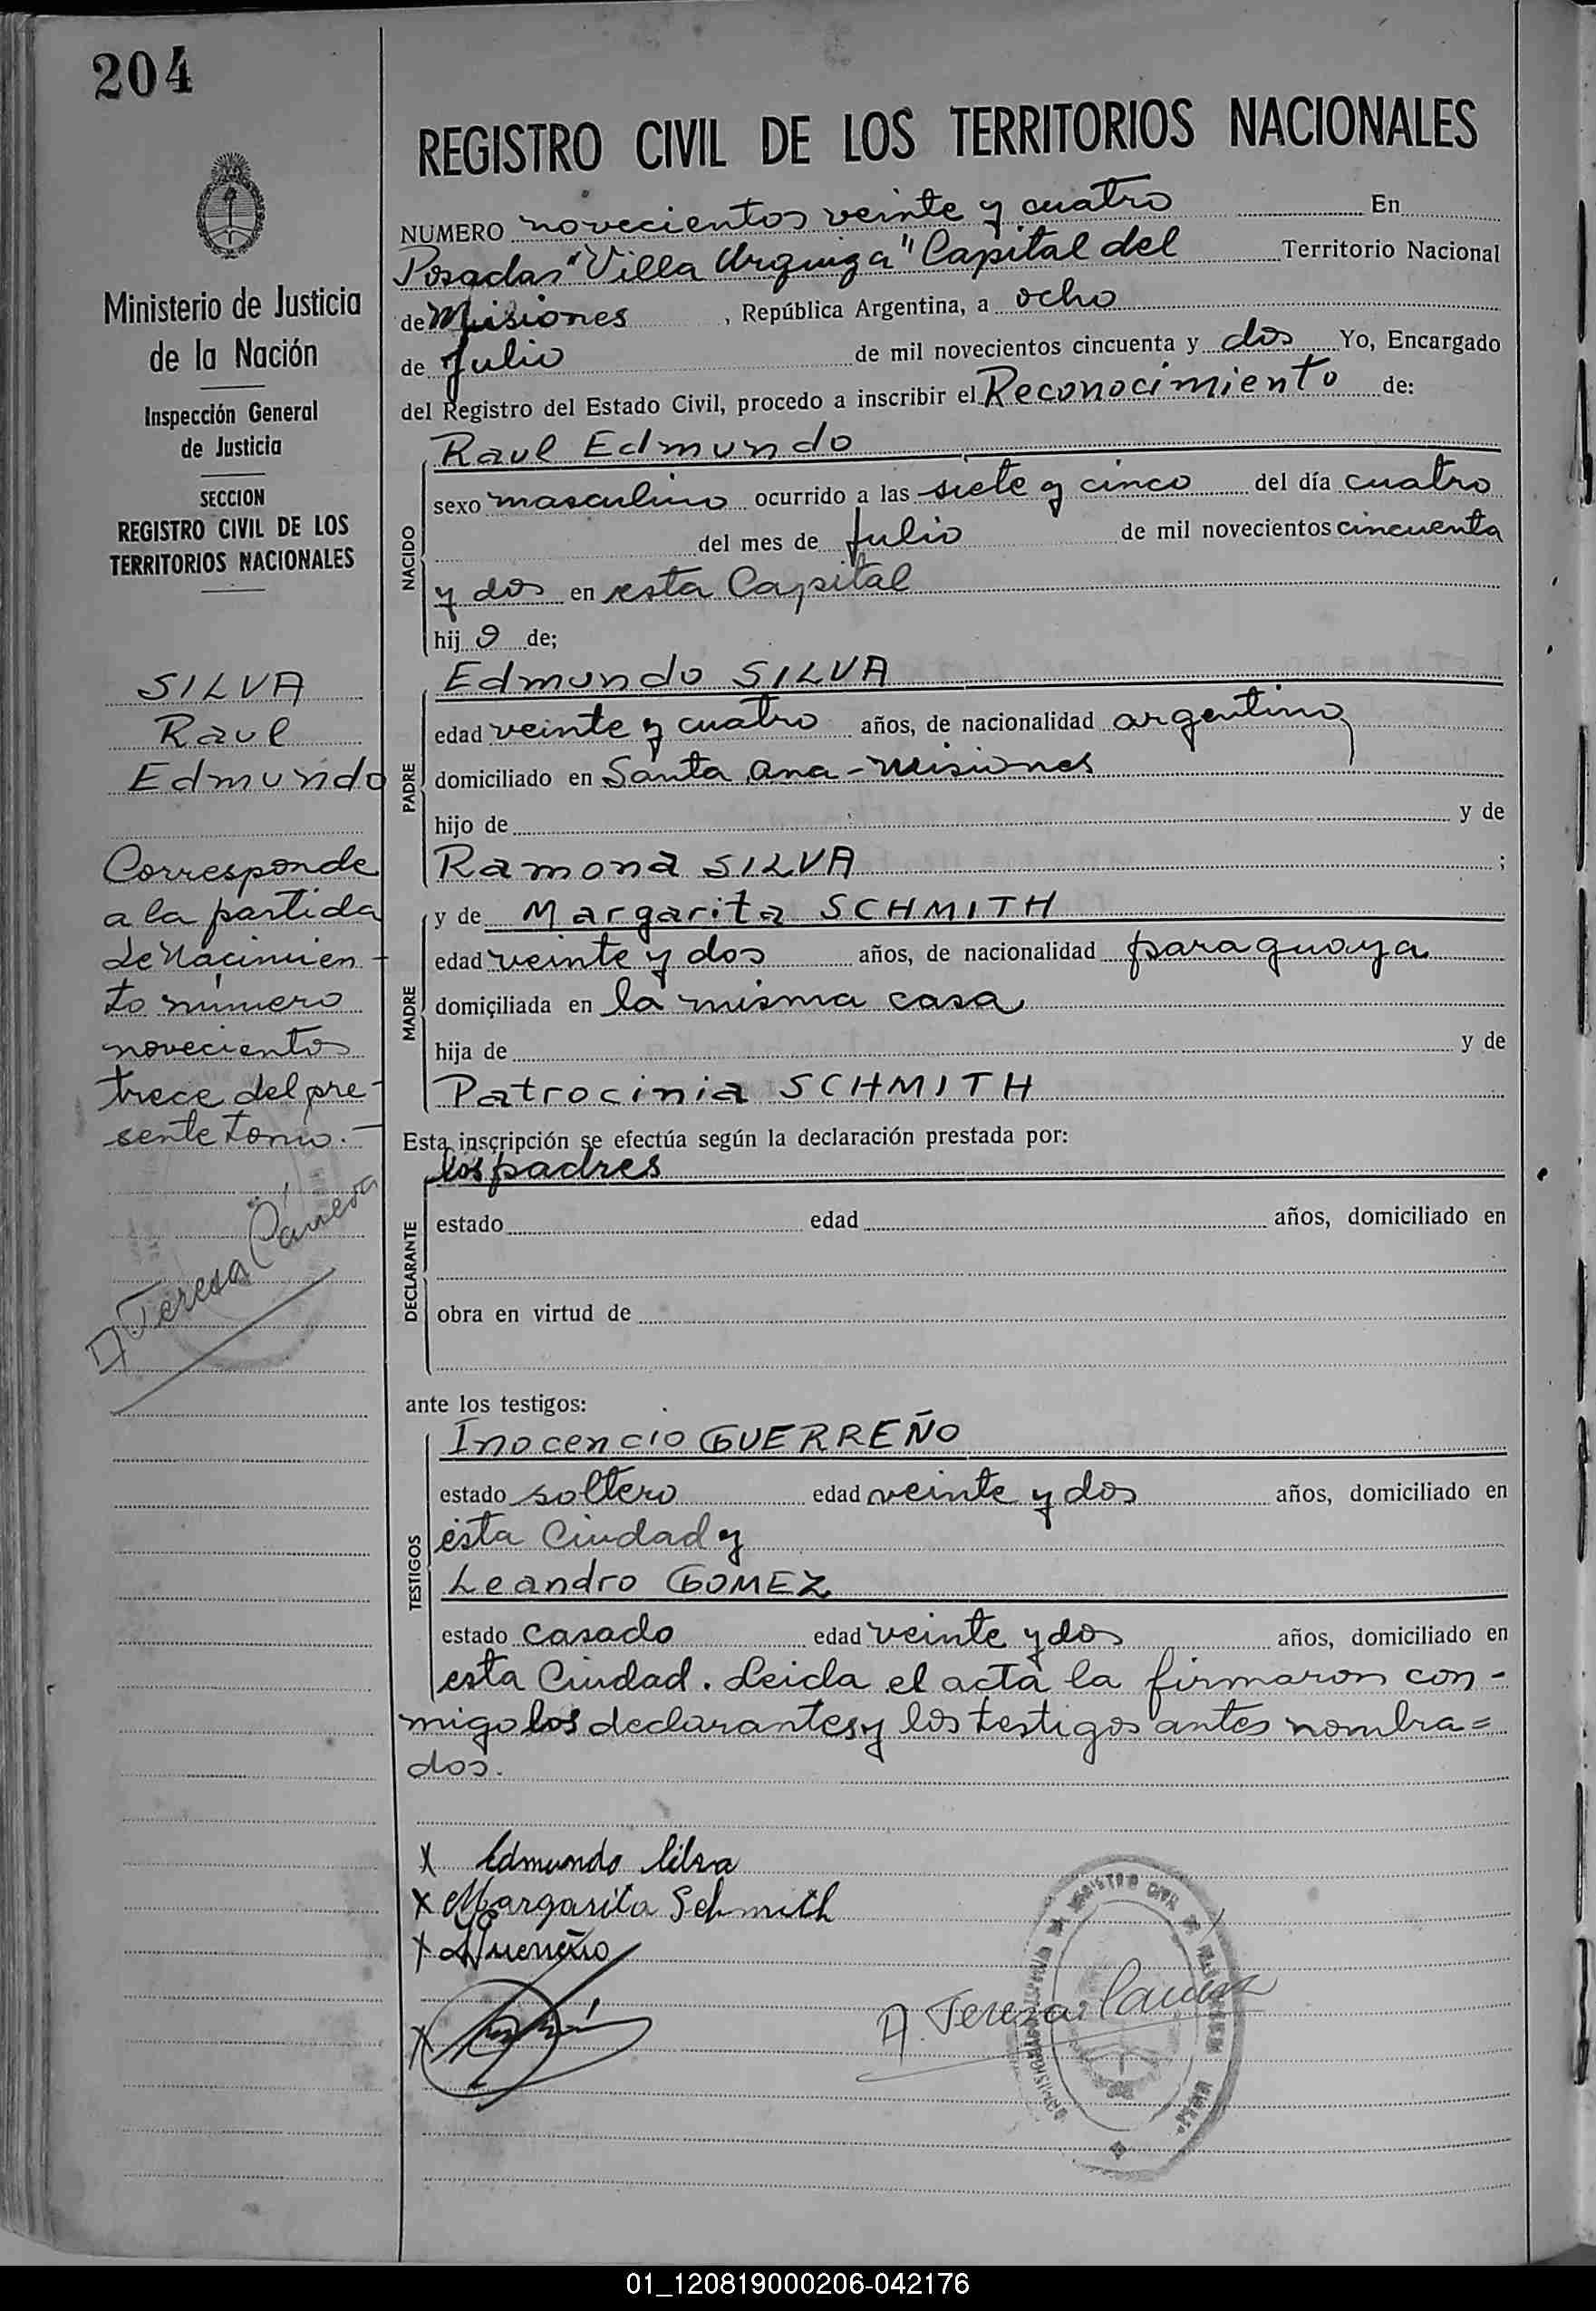 204
Ministerio de Justicia
de la Nación
Inspección General
de Justicia
SECCION
REGISTRO CIVIL DE LOS
TERRITORIOS NACIONALES
SILVA
Raul
Edmundo
Corresponde
a la partida
de Nacimien-
to número
novecientos
trece del pre-
sente tomo.-
A Teresa
REGISTRO CIVIL DE LOS TERRITORIOS NACIONALES
NUMERO novecientos veinte y cuatro En
Posadas "Villa Urquiza" Capital del Territorio Nacional
de Misiones, República Argentina, a ocho
de Julio de mil novecientos cincuenta y dos Yo, Encargado
del Registro del Estado Civil, procedo a inscribir el Reconocimiento de:
NACIDO
Raul Edmundo
sexo masculino ocurrido a las siete y cinco del día cuatro
del mes de Julio de mil novecientos cincuenta
y dos en esta Capital
hijo de;
PADRE
Edmundo SILVA
edad veinte y cuatro años, de nacionalidad argentino
domiciliado en Santa Ana - Misiones
hijo de y de
Ramona SILVA ;
MADRE
y de Margarita SCHMITH
edad veinte y dos años, de nacionalidad paraguaya
domiciliada en la misma casa
hija de y de
Patrocinia SCHMITH
Esta inscripción se efectúa según la declaración prestada por:
DECLARANTE
los padres
estado edad años, domiciliado en
obra en virtud de
ante los testigos:
TESTIGOS
Inocencio GUERREÑO
estado soltero edad veinte y dos años, domiciliado en
esta Ciudad y
Leandro GOMEZ
estado casado edad veinte y dos años, domiciliado en
esta Ciudad. Leida el acta la firmaron con-
migo los declarantes y los testigos antes nombra=
dos.
X Edmundo Silva
X Margarita Schmith
X
X
A. Teresa
01_120819000206-042176